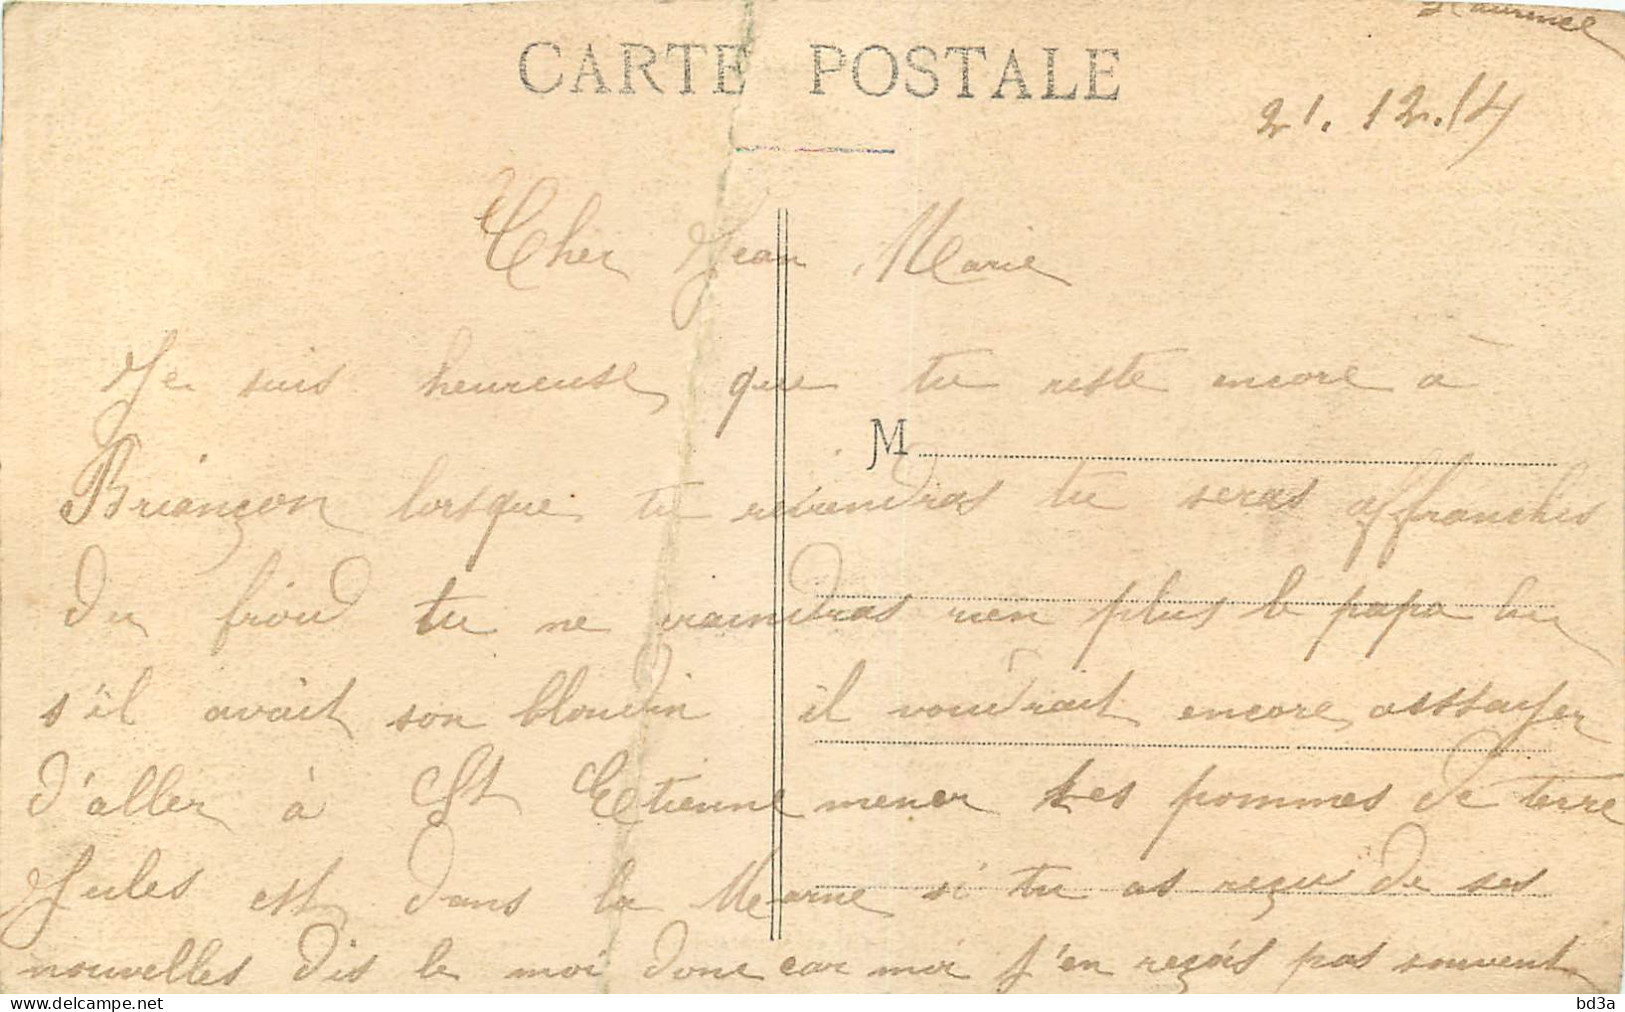 Laurence
CARTE POSTALE
21.12.14
Cher Jean Marie
Je suis heureuse que tu reste encore à
M
Briançon lorsque tu reviendras tu seras affranchis
du froid tu ne craindras rien plus le papa lui
s'il avait son blondin il voudrait encore asssayer
d'aller à St Etienne mener les pommes de terre
Jules est dans la Marne si tu as reçu de ses
nouvelles dis le moi donc car moi j'en reçois pas souvent
bd3a pour delcampe.net
bd3a